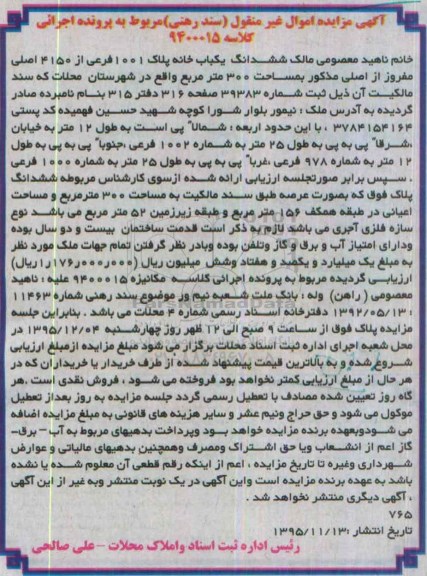 آگهی مزایده اموال غیر منقول (سند رهنی) مربوط به پرونده اجرائی
کلاسه ۹۴۰۰۰۱۵
خانم ناهید معصومی مالک ششدانگ یکباب خانه پلاک ۱۰۰۱ فرعی از ۴۱۵۰ اصلی
مفروز از اصلی مذکور بمساحت ۳۰۰ متر مربع واقع در شهرستان محلات که سند
مالکیت آن ذیل ثبت شماره ۳۹۳۸۳ صفحه ۳۱۶ دفتر ۳۱۵ بنام نامبرده صادر
گردیده به آدرس ملک : نیمور بلوار شورا کوچه شهید حسین فهمیده کد پستی
۳۷۸۴۱۵۴۱۶۴ ، با این حدود اربعه : شمالاً پی است به طول ۱۲ متر به خیابان
،شرقاً پی به پی به طول ۲۵ متر به شماره ۱۰۰۲ فرعی ،جنوباً پی به پی به طول
۱۲ متر به شماره ۹۷۸ فرعی ،غرباً پی به پی به طول ۲۵ متر به شماره ۱۰۰۰ فرعی
. سپس برابر صورتجلسه ارزیابی ارائه شده ازسوی کارشناس مربوطه ششدانگ
پلاک فوق که بصورت عرصه طبق سند مالکیت به مساحت ۳۰۰ مترمربع و مساحت
اعیانی در طبقه همکف ۱۵۶ متر مربع و طبقه زیرزمین ۵۲ متر مربع می باشد نوع
سازه فلزی آجری می باشد لازم به ذکر است قدمت ساختمان بیست و دو سال بوده
ودارای امتیاز آب و برق و گاز وتلفن بوده وبادر نظر گرفتن تمام جهات ملک مورد نظر
به مبلغ یک میلیارد و یکصد و هفتاد وشش میلیون ریال (۱٫۱۷۶٫۰۰۰٫۰۰۰ ریال)
ارزیابی گردیده مربوط به پرونده اجرائی کلاسه مکانیزه ۹۴۰۰۰۱۵ علیه : ناهید
معصومی ( راهن) وله : بانک ملت شعبه نیم ور موضوع سند رهنی شماره ۱۱۴۶۳
۱۳۹۲/۰۵/۱۳ : دفترخانه اسناد رسمی شماره ۴ محلات می باشد . بنابراین جلسه
مزایده پلاک فوق از ساعت ۹ صبح الی ۱۲ ظهر روز چهارشنبه ۱۳۹۵/۱۲/۰۴ در
محل شعبه اجرای اداره ثبت اسناد محلات برگزار می شود مبلغ مزایده ازمبلغ ارزیابی
شروع شده و به بالاترین قیمت پیشنهاد شده از طرف خریدار یا خریداران که در
هر حال از مبلغ ارزیابی کمتر نخواهد بود فروخته می شود ، فروش نقدی است .هر
گاه روز تعیین شده مصادف با تعطیل رسمی گردد جلسه مزایده به روز بعداز تعطیل
موکول می شود و حق حراج ونیم عشر و سایر هزینه های قانونی به مبلغ مزایده اضافه
می شودوبعهده برنده مزایده خواهد بود وپرداخت بدهیهای مربوط به آب – برق-
گاز اعم از انشعاب ویا حق اشتراک ومصرف وهمچنین بدهیهای مالیاتی و عوارض
شهرداری وغیره تا تاریخ مزایده ، اعم از اینکه رقم قطعی آن معلوم شده یا نشده
باشد به عهده برنده مزایده است واین آگهی در یک نوبت منتشر وبه غیر از این آگهی
، آگهی دیگری منتشر نخواهد شد .
۷۶۵
تاریخ انتشار :۱۳۹۵/۱۱/۱۳
رئیس اداره ثبت اسناد واملاک محلات –علی صالحی